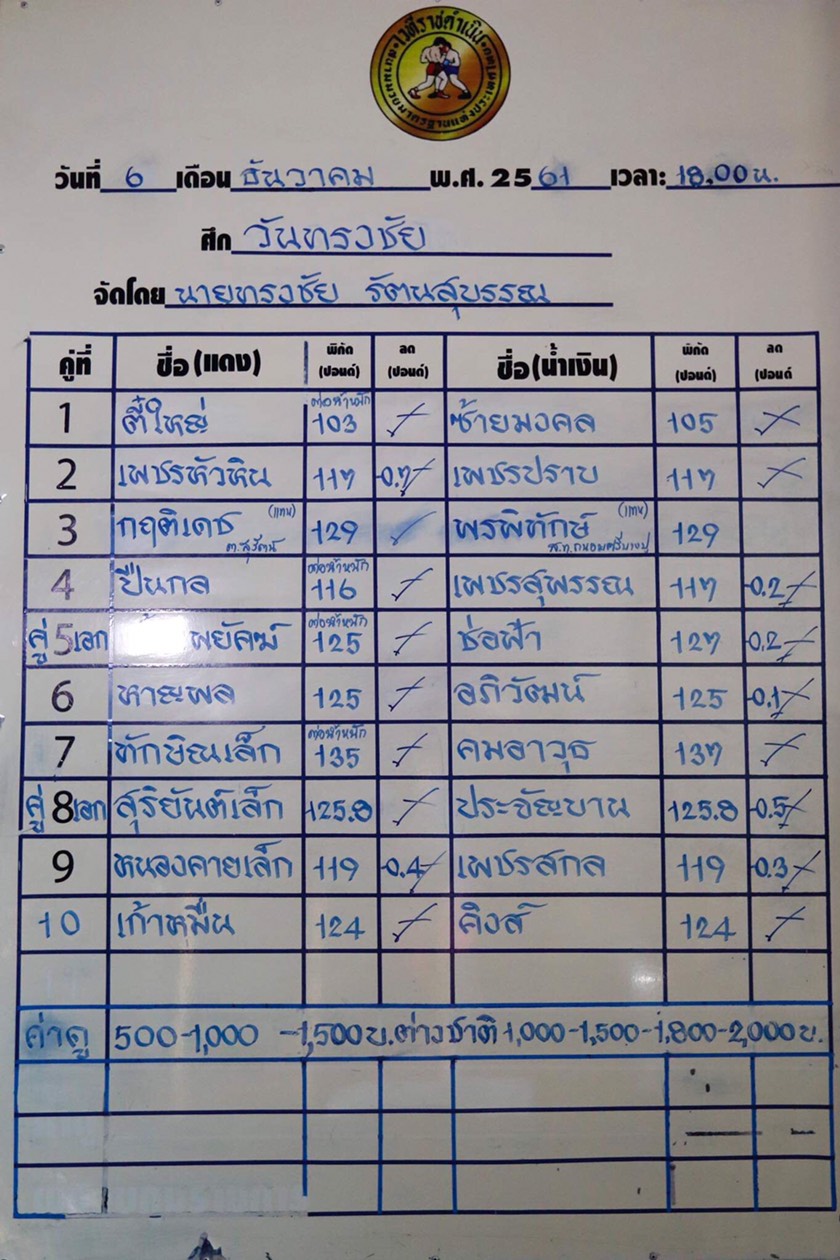 เวทีราชดำเนิน
สนามมวยมาตรฐานแห่งประเทศไทย
วันที่ 6 เดือน ธันวาคม พ.ศ. 2561 เวลา: 18.00 น.
ศึก วันทรงชัย
จัดโดย นายทรงชัย รัตนสุบรรณ
คู่ที่ ชื่อ (แดง) พิกัด (ปอนด์) ลด (ปอนด์) ชื่อ (น้ำเงิน) พิกัด (ปอนด์) ลด (ปอนด์
1 ตี๋ใหญ่ ต่อน้ำหนัก 103 ซ้ายมงคล 105
2 เพชรหัวหิน 117 -0.7 เพชรปราบ 117
3 กฤติเดช (แทน) ต.สุรัตน์ 129 พรพิทักษ์ (แทน) 129
4 ปืนกล ต่อน้ำหนัก 116 เพชรสุพรรณ 117 -0.2
คู่ 5 เอก พยัคฆ์ ต่อน้ำหนัก 125 ช่อฟ้า 127 -0.2
6 หาญพล 125 อภิวัฒน์ 125 -0.1
7 ทักษิณเล็ก ต่อน้ำหนัก 135 คมอาวุธ 137
คู่ 8 เอก สุริยันต์เล็ก 125.8 ประจัญบาน 125.8 -0.5
9 หนองคายเล็ก 119 -0.4 เพชรสกล 119 -0.3
10 เก้าหมื่น 124 คิงส์ 124
ค่าดู 500-1,000 -1,500 บ. ต่างชาติ 1,000-1,500-1,800-2,000 บ.